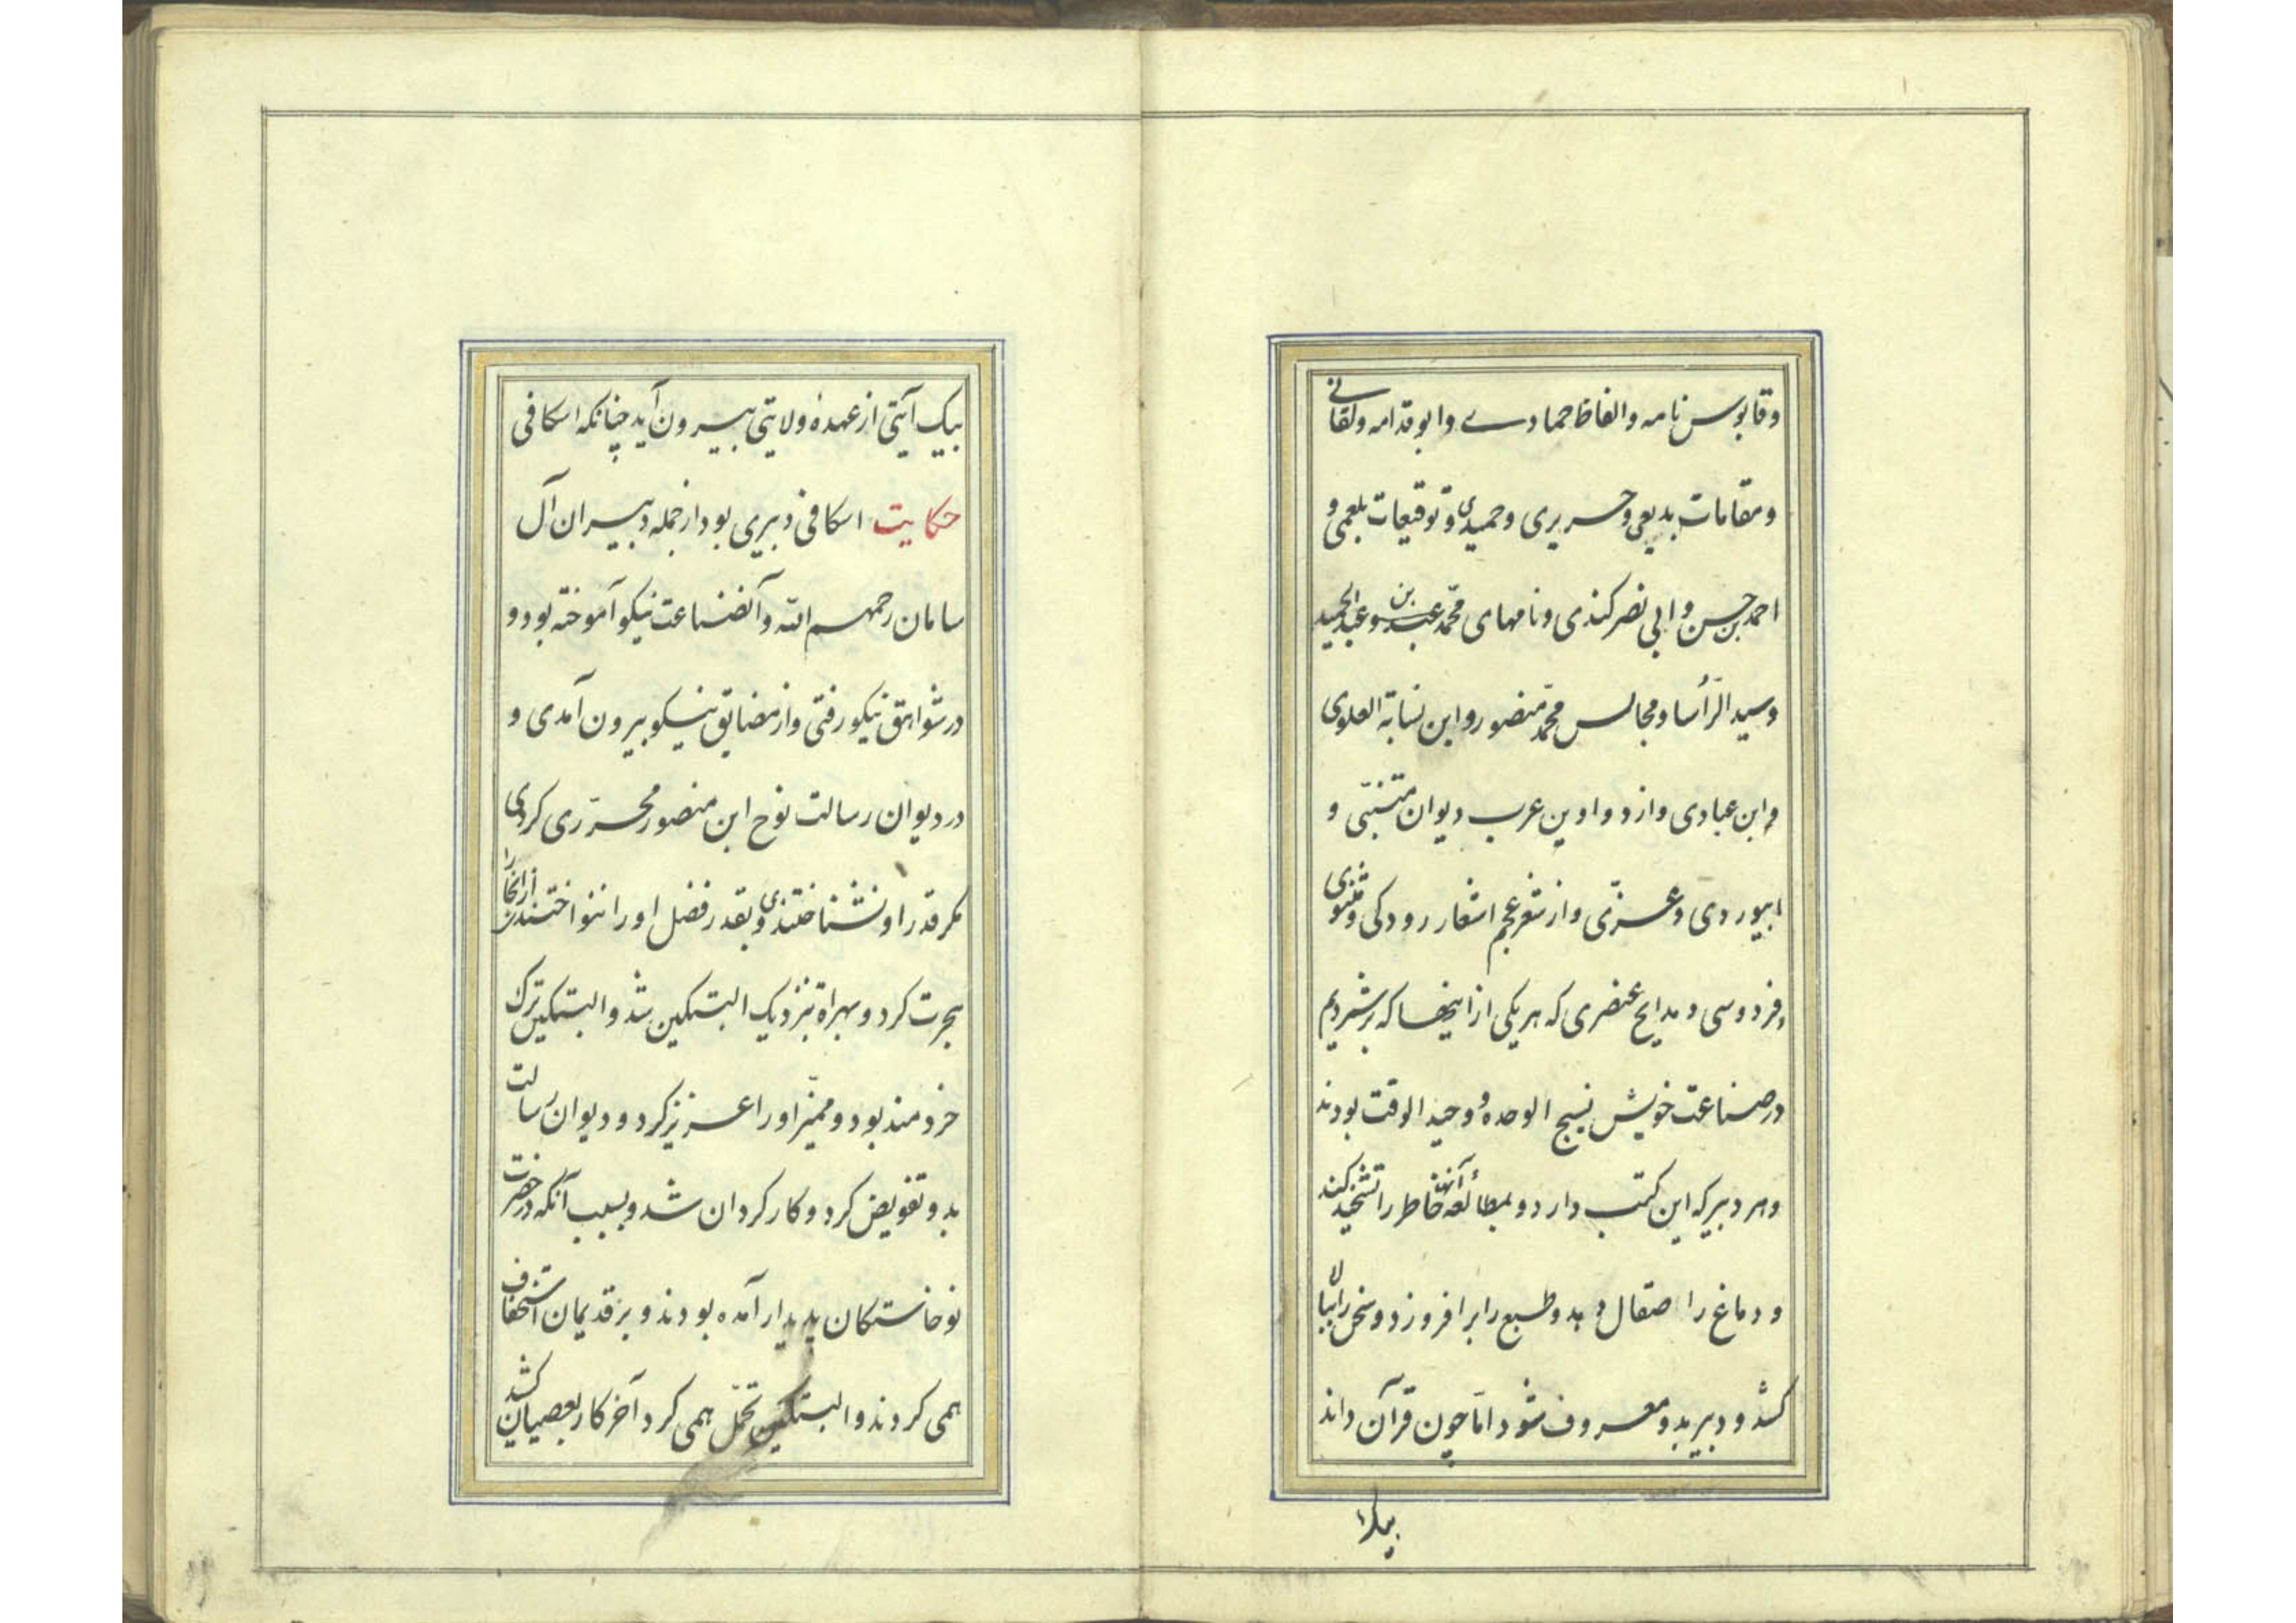 و قابوس نامه و الفاظ حمادے و ابو قدامه و لقانی
و مقامات بدیعی و حریری و حمیدی و توقیعات بلعمی و
احمد بن حسن و ابی نصر کندی و نامهای محمّد عبد بن و عبد الحمید
و سید الرّأسا و مجالس محمّد منصور و ابن نسابة العلوی
و ابن عبادی و از دواوین عرب دیوان متنبّی و
ابیوردی و عزّی و از شعر عجم اشعار رودکی و مثنوی
فردوسی و مدایح عنصری که هر یکی از اینها که برشمردیم
در صناعت خویش نسیج الوحده و وحید الوقت بودند
و هر دبیر که این کتب دارد و بمطالعهٔ آنها خاطر را تشحید کند
و دماغ را صقال دهد و طبع را برافروزد و سخن را ببالا
کشد و دبیر بدو معروف شود امّا چون قرآن داند
بیک
بیک آیتی از عهدهٔ ولایتی بیرون آید چنانکه اسکافی
حکایت اسکافی دبیری بود از جمله دبیران آل
سامان رحمهم اللّه و آنصناعت نیکو آموخته بود و
در شواهق نیکو رفتی و از مضایق نیکو بیرون آمدی و
در دیوان رسالت نوح ابن منصور محرّری کردی
مکر قدر او نشناختندی و بقدر فضل او را ننواختندی از بخارا
هجرت کرد و بهراة بنزدیک البتکین شد و البتکین ترک
خردمند بود و ممیّز او را عزیز کرد و دیوان رسالت
بدو تفویض کرد و کار کردان شد و بسبب آنکه در حضرت
نوخاستکان پدیدار آمده بودند و بر قدیمان استخفاف
همی کردند و البتکین تحمّل همی کرد آخر کار بعصیان کشید